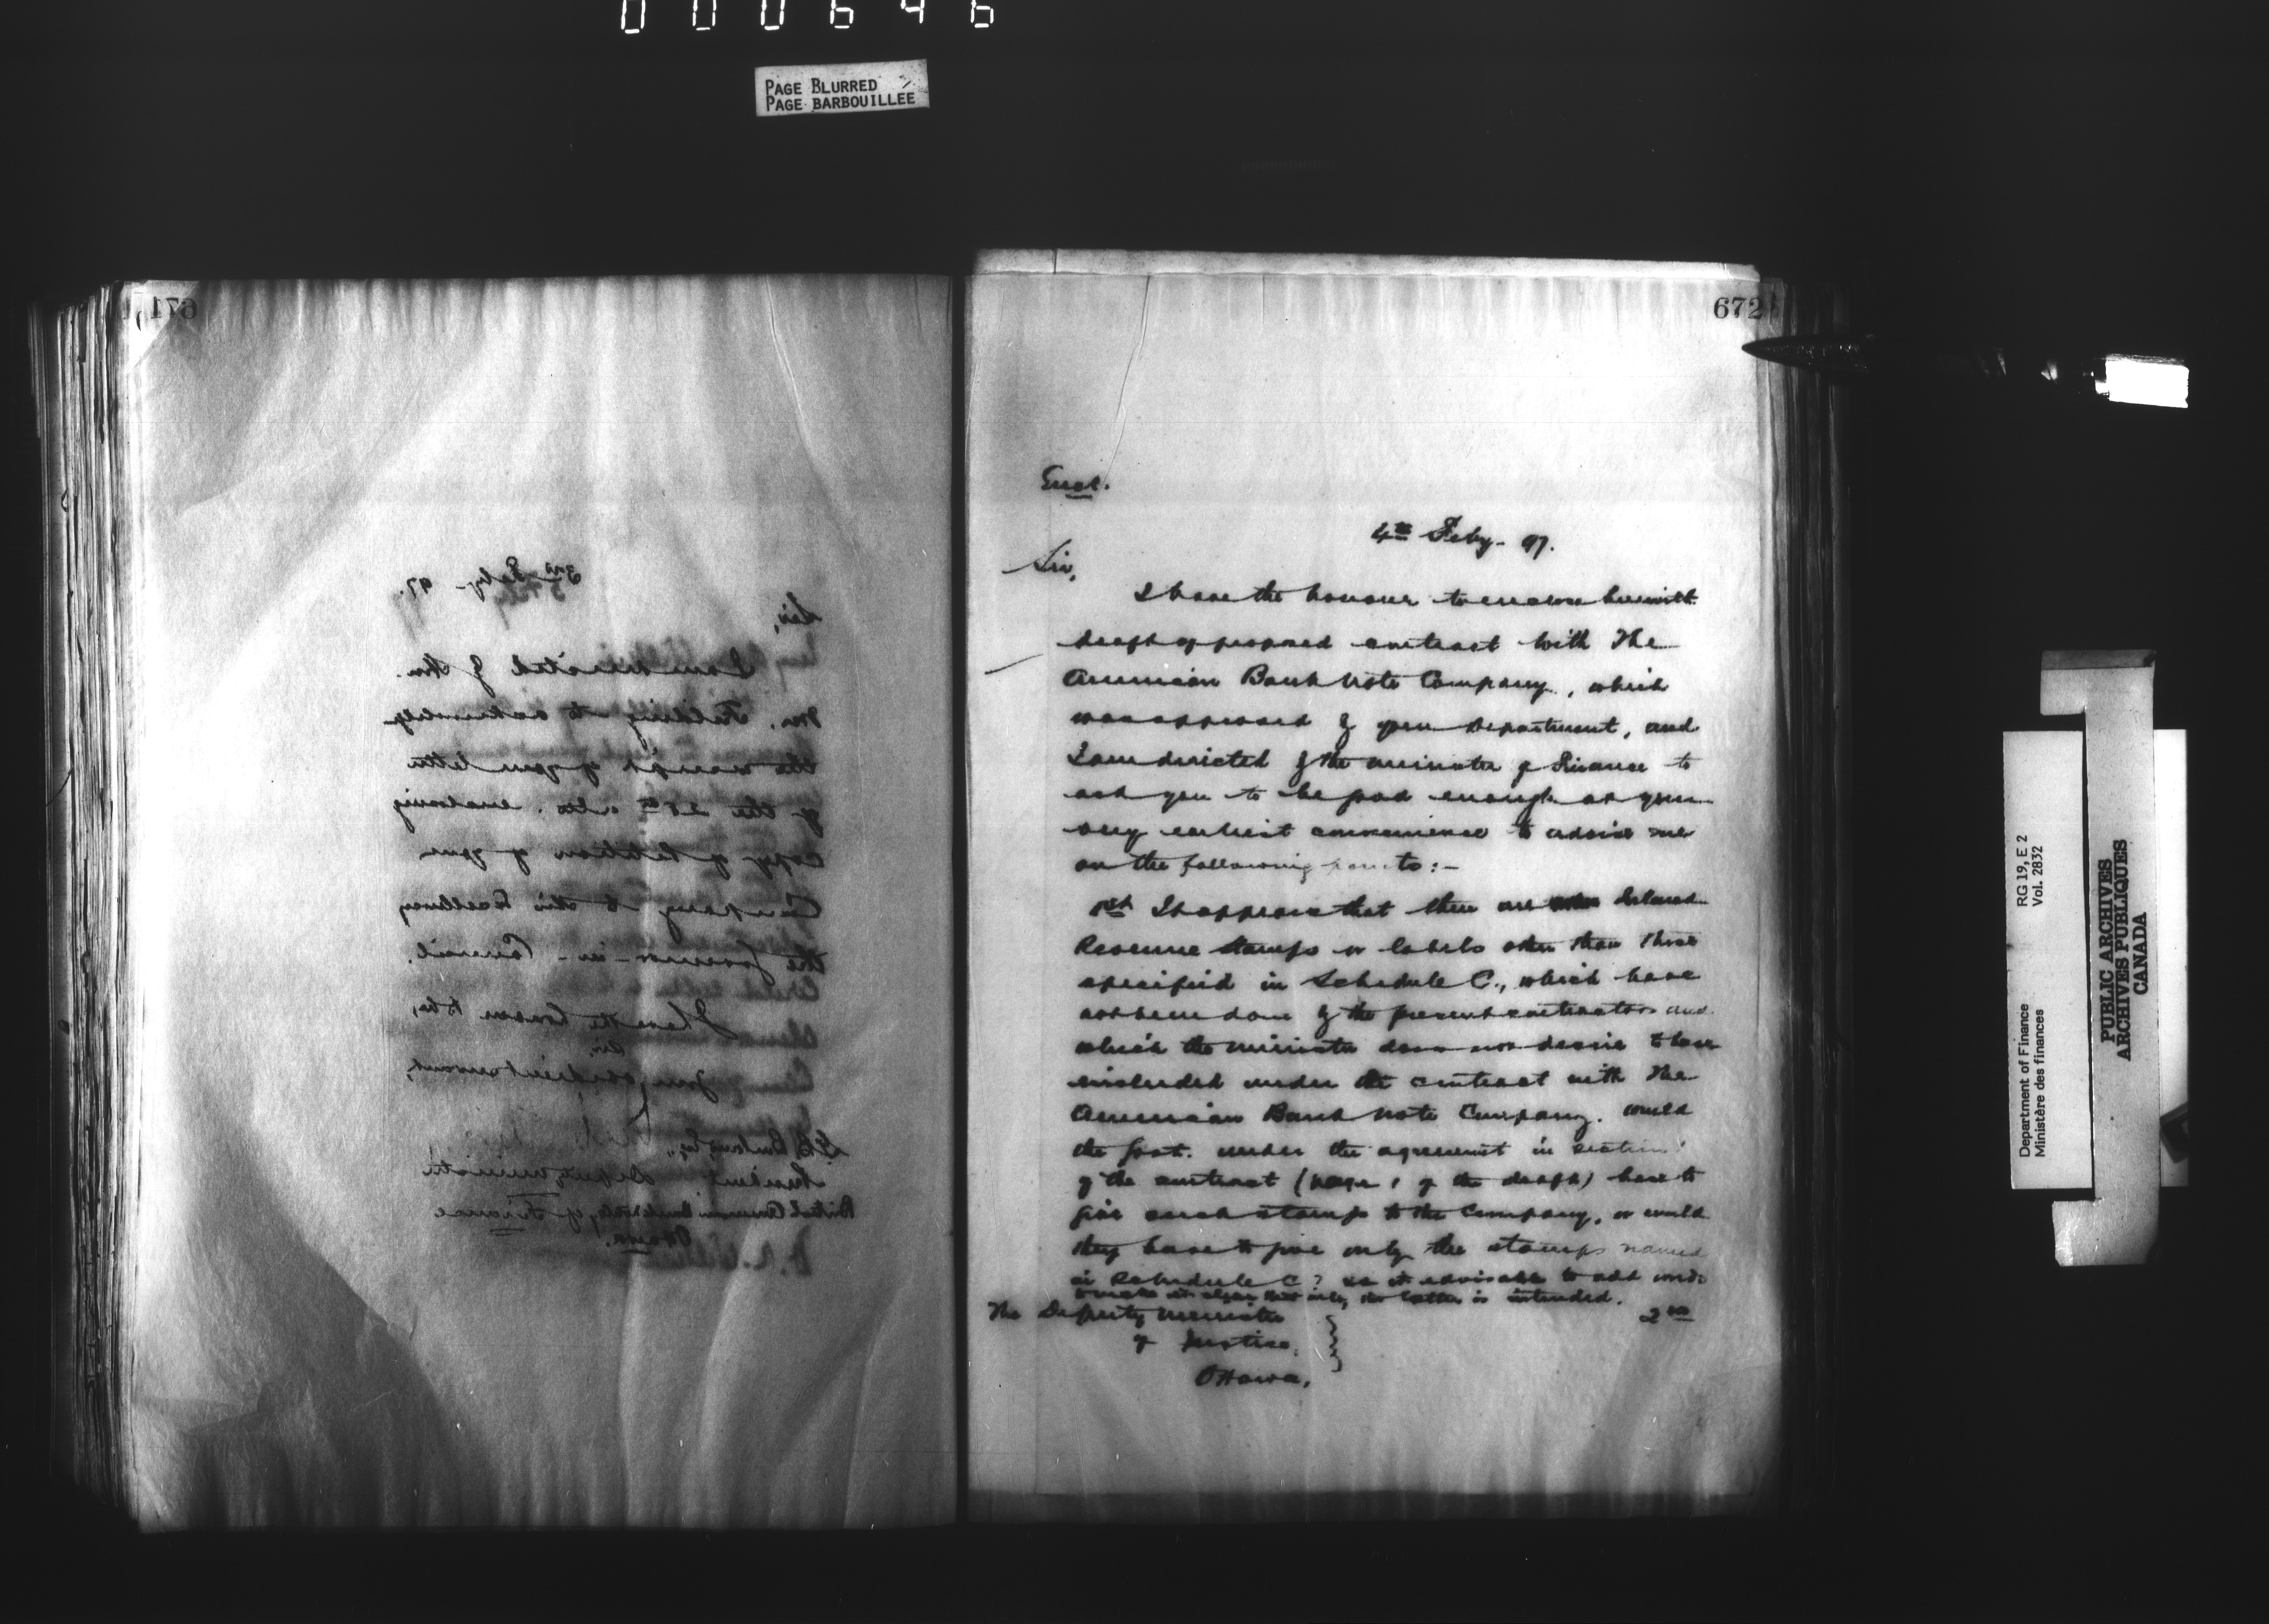 000646
PAGE BLURRED
PAGE BARBOUILLEE
671
3rd Feby 97.
Sir,
I am directed by Hon.
Mr. Fielding to acknowledge
the receipt of your letter
of the 28th ulto. enclosing
copy of petition of your
Company to His Excellency
the Governor-in-Council.
I have the honour to be,
Sir,
Your obedient servant,
Esq.,
President Deputy Minister
British American Bank Note Co. of Finance
Ottawa.
672
Encl.
4th Feby. 97.
Sir,
I have the honour to enclose herewith
draft of proposed contract with The
American Bank Note Company, which
was approved by your Department, and
I am directed by the Minister of Finance to
ask you to be good enough at your
very earliest convenience to advise me
on the following points:-
1st It appears that there are Inland
Revenue stamps or labels other than those
specified in Schedule C., which have
not been done by the present contractors and
which the Minister does not desire to have
included under the contract with The
American Bank Note Company. Would
the Govt. under the agreement in section
of the contract (page 1 of the draft) have to
give such stamps to the Company, or would
they have to give only the stamps named
in Schedule C? Is it advisable to add words
to make it clear that only the latter is intended.
The Deputy Minister
of Justice,
Ottawa.
2nd
Department of Finance RG 19, E 2
Ministère des finances Vol. 2832
PUBLIC ARCHIVES
ARCHIVES PUBLIQUES
CANADA